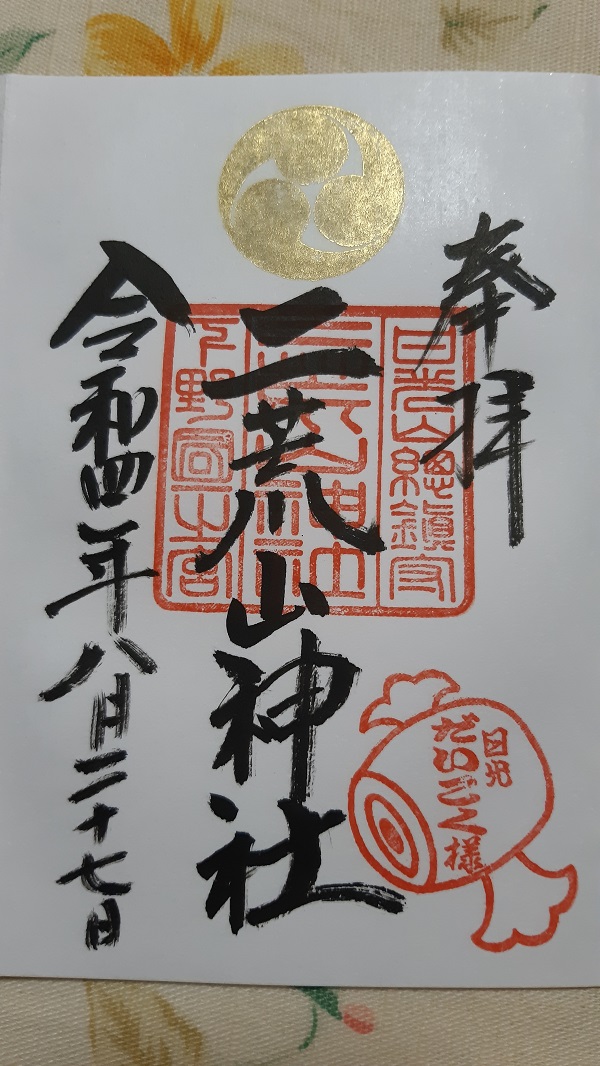 奉拝
日光山總鎮守
二荒山神社
二荒山神社
下野国一之宮
令和四年八月二十七日
日光
だいこく様